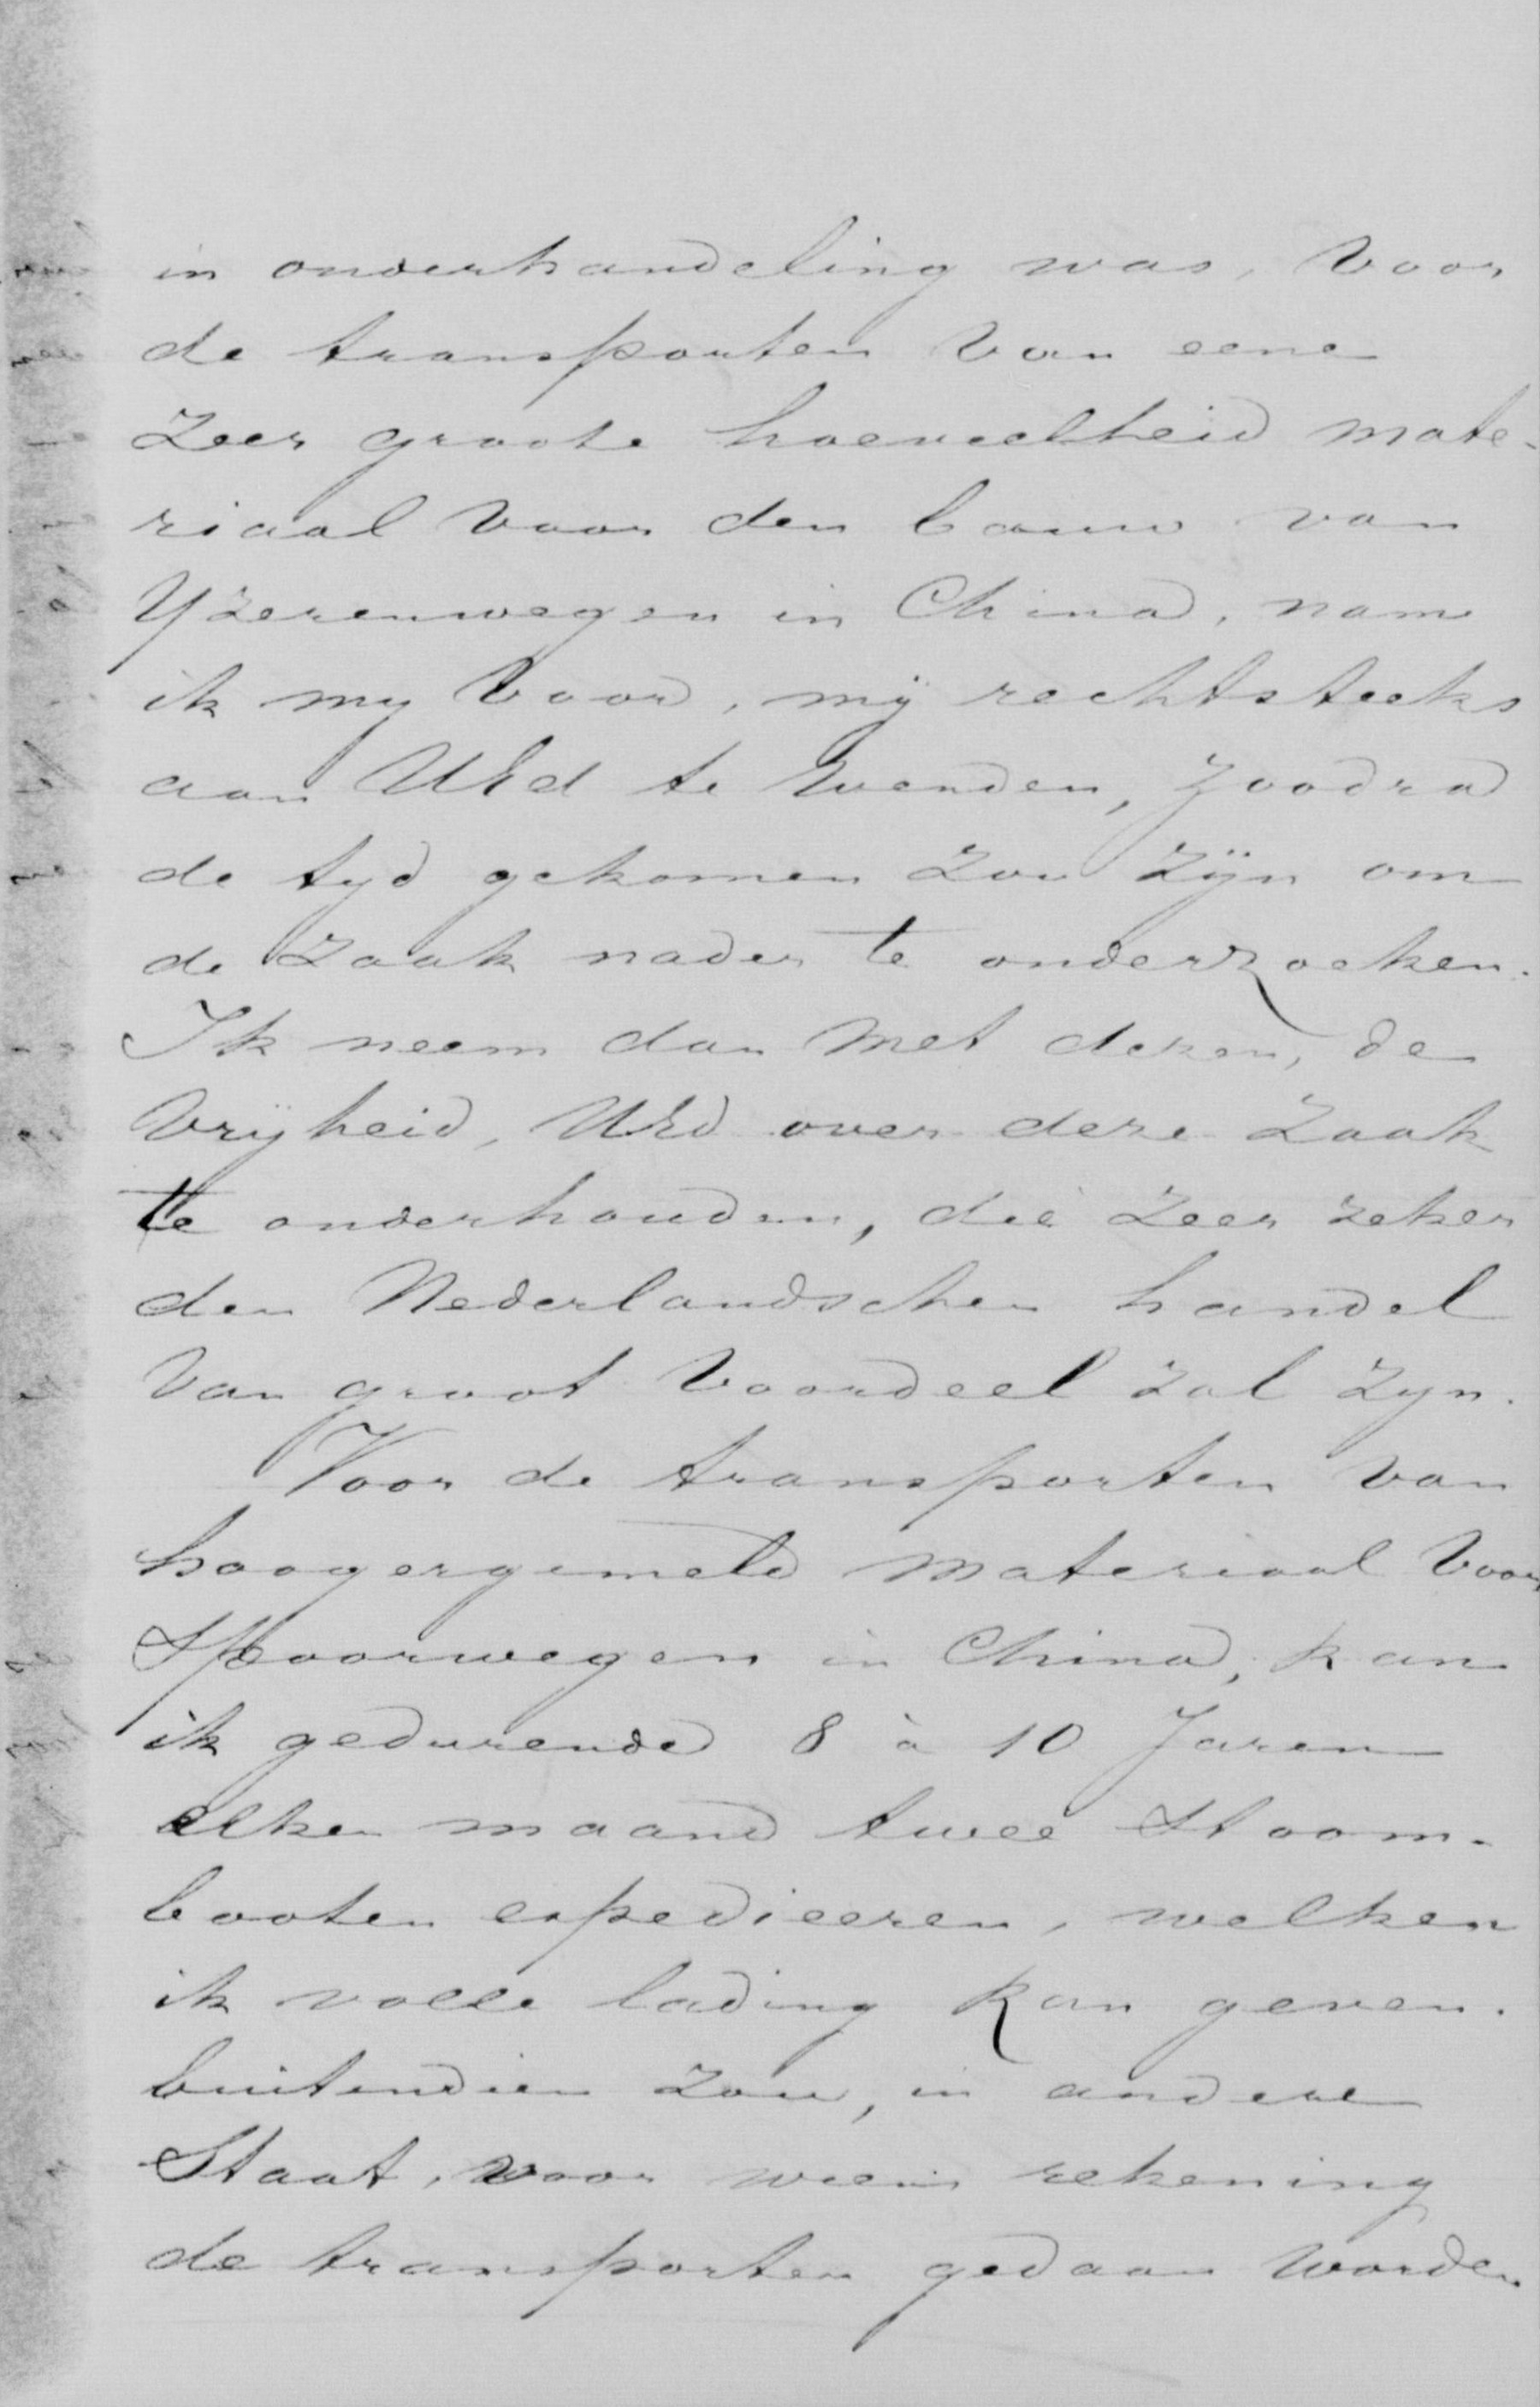 in onderhandeling was, voor
de transporten van eene
zeer groote hoeveelheid mate-
riaal voor den bouw van
Yzerenwegen in China, nam
ik my voor, mÿ rechtsteeks
aan UEd te wenden, zoodra
de tyd gekomen zou zÿn om
de zaak nader te onderzoeken.
Ik neem dan met dezen, de
vrÿheid, UEd over deze zaak
te onderhouden, die zeer zeker
den Nederlandschen handel
van groot voordeel zal zyn.
Voor de transporten van
hoogergemeld materiaal voor
Spoorwegen in China, kan
ik gedurende 8 à 10 Jaren
elke maand twee Stoom-
booten expedieeren, welken
ik volle lading kan geven.
buitendien zou, in andere
Staat, voor wiens rekening
de transporten gedaan worden